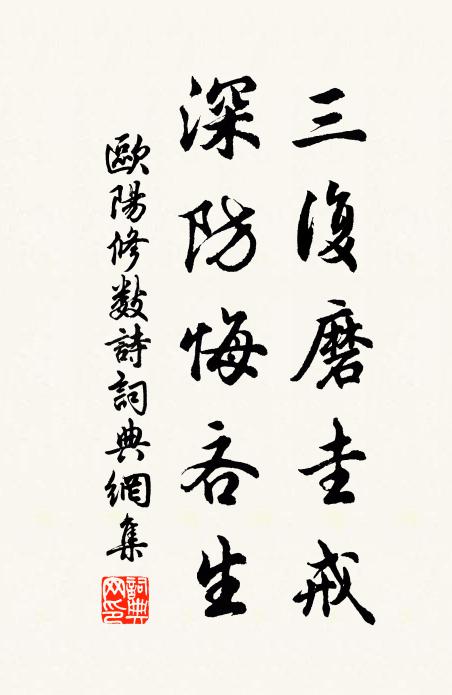 三復磨圭戒
深防悔吝生
歐陽修數詩詞典網集
詞典網印